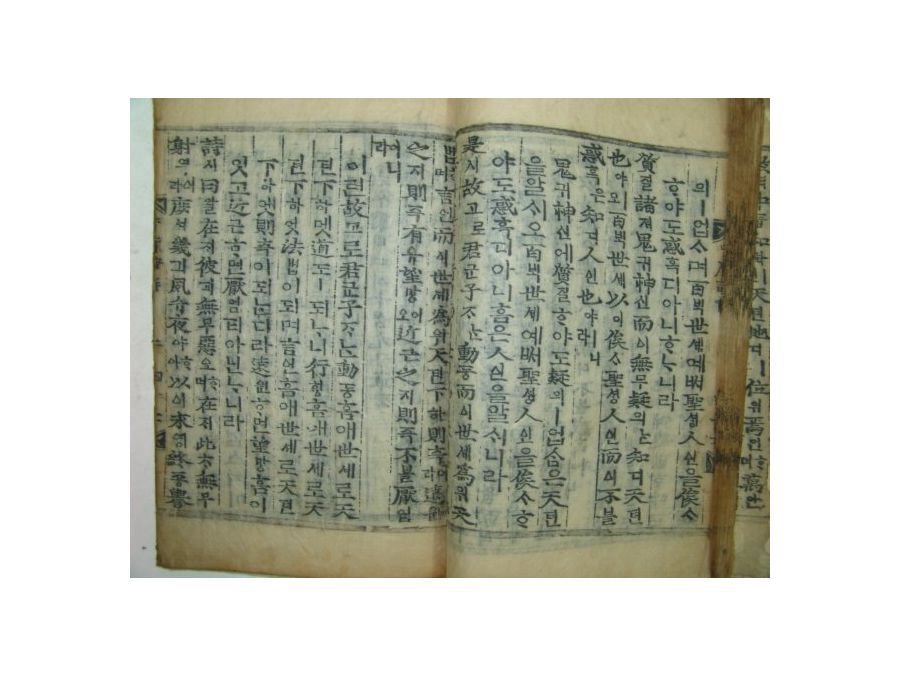 天텬地디ㅣ位위焉언ᄒᆞ며萬만
의ㅣ업스며百ᄇᆡᆨ世셰예ᄡᅥ聖셩人인을俟ᄉᆞ
ᄒᆞ야도惑혹디아니ᄒᆞᄂᆞ니라
質질諸져鬼귀神신而이無무疑의ᄂᆞᆫ知디天텬
也야ㅣ오百ᄇᆡᆨ世셰以이俟ᄉᆞ聖셩人인而이不블
惑혹은知디人인也야ㅣ니라
鬼귀神신에質질ᄒᆞ야도疑의ㅣ업슴은天텬
을알시오百ᄇᆡᆨ世셰예ᄡᅥ聖셩人인을俟ᄉᆞᄒᆞ
야도惑혹디아니홈은人인을알시니라
是시故고로君군子ᄌᆞᄂᆞᆫ動동而이世셰爲위天
법이며言언而이世셰爲위天텬下하則측이라遠원
之지則즉有유望망이오近근之지則즉不블厭염
이니라
이런故고로君군子ᄌᆞᄂᆞᆫ動동홈애世셰로天
텬下하옛道도ㅣ되ᄂᆞ니行ᄒᆡᆼ홈애世셰로天
텬下하옛法법이되며言언홈애世셰로天텬
下하옛則측이되ᄂᆞᆫ디라遠원ᄒᆞ면望망홈이
잇고近근ᄒᆞ면厭염티아닌ᄂᆞ니라
詩시曰왈在ᄌᆡ彼피無무惡오ᄒᆞ며在ᄌᆡ此ᄎᆞ無무
射역이라庶셔幾긔夙슉夜야ᄒᆞ야以이永영終죵譽